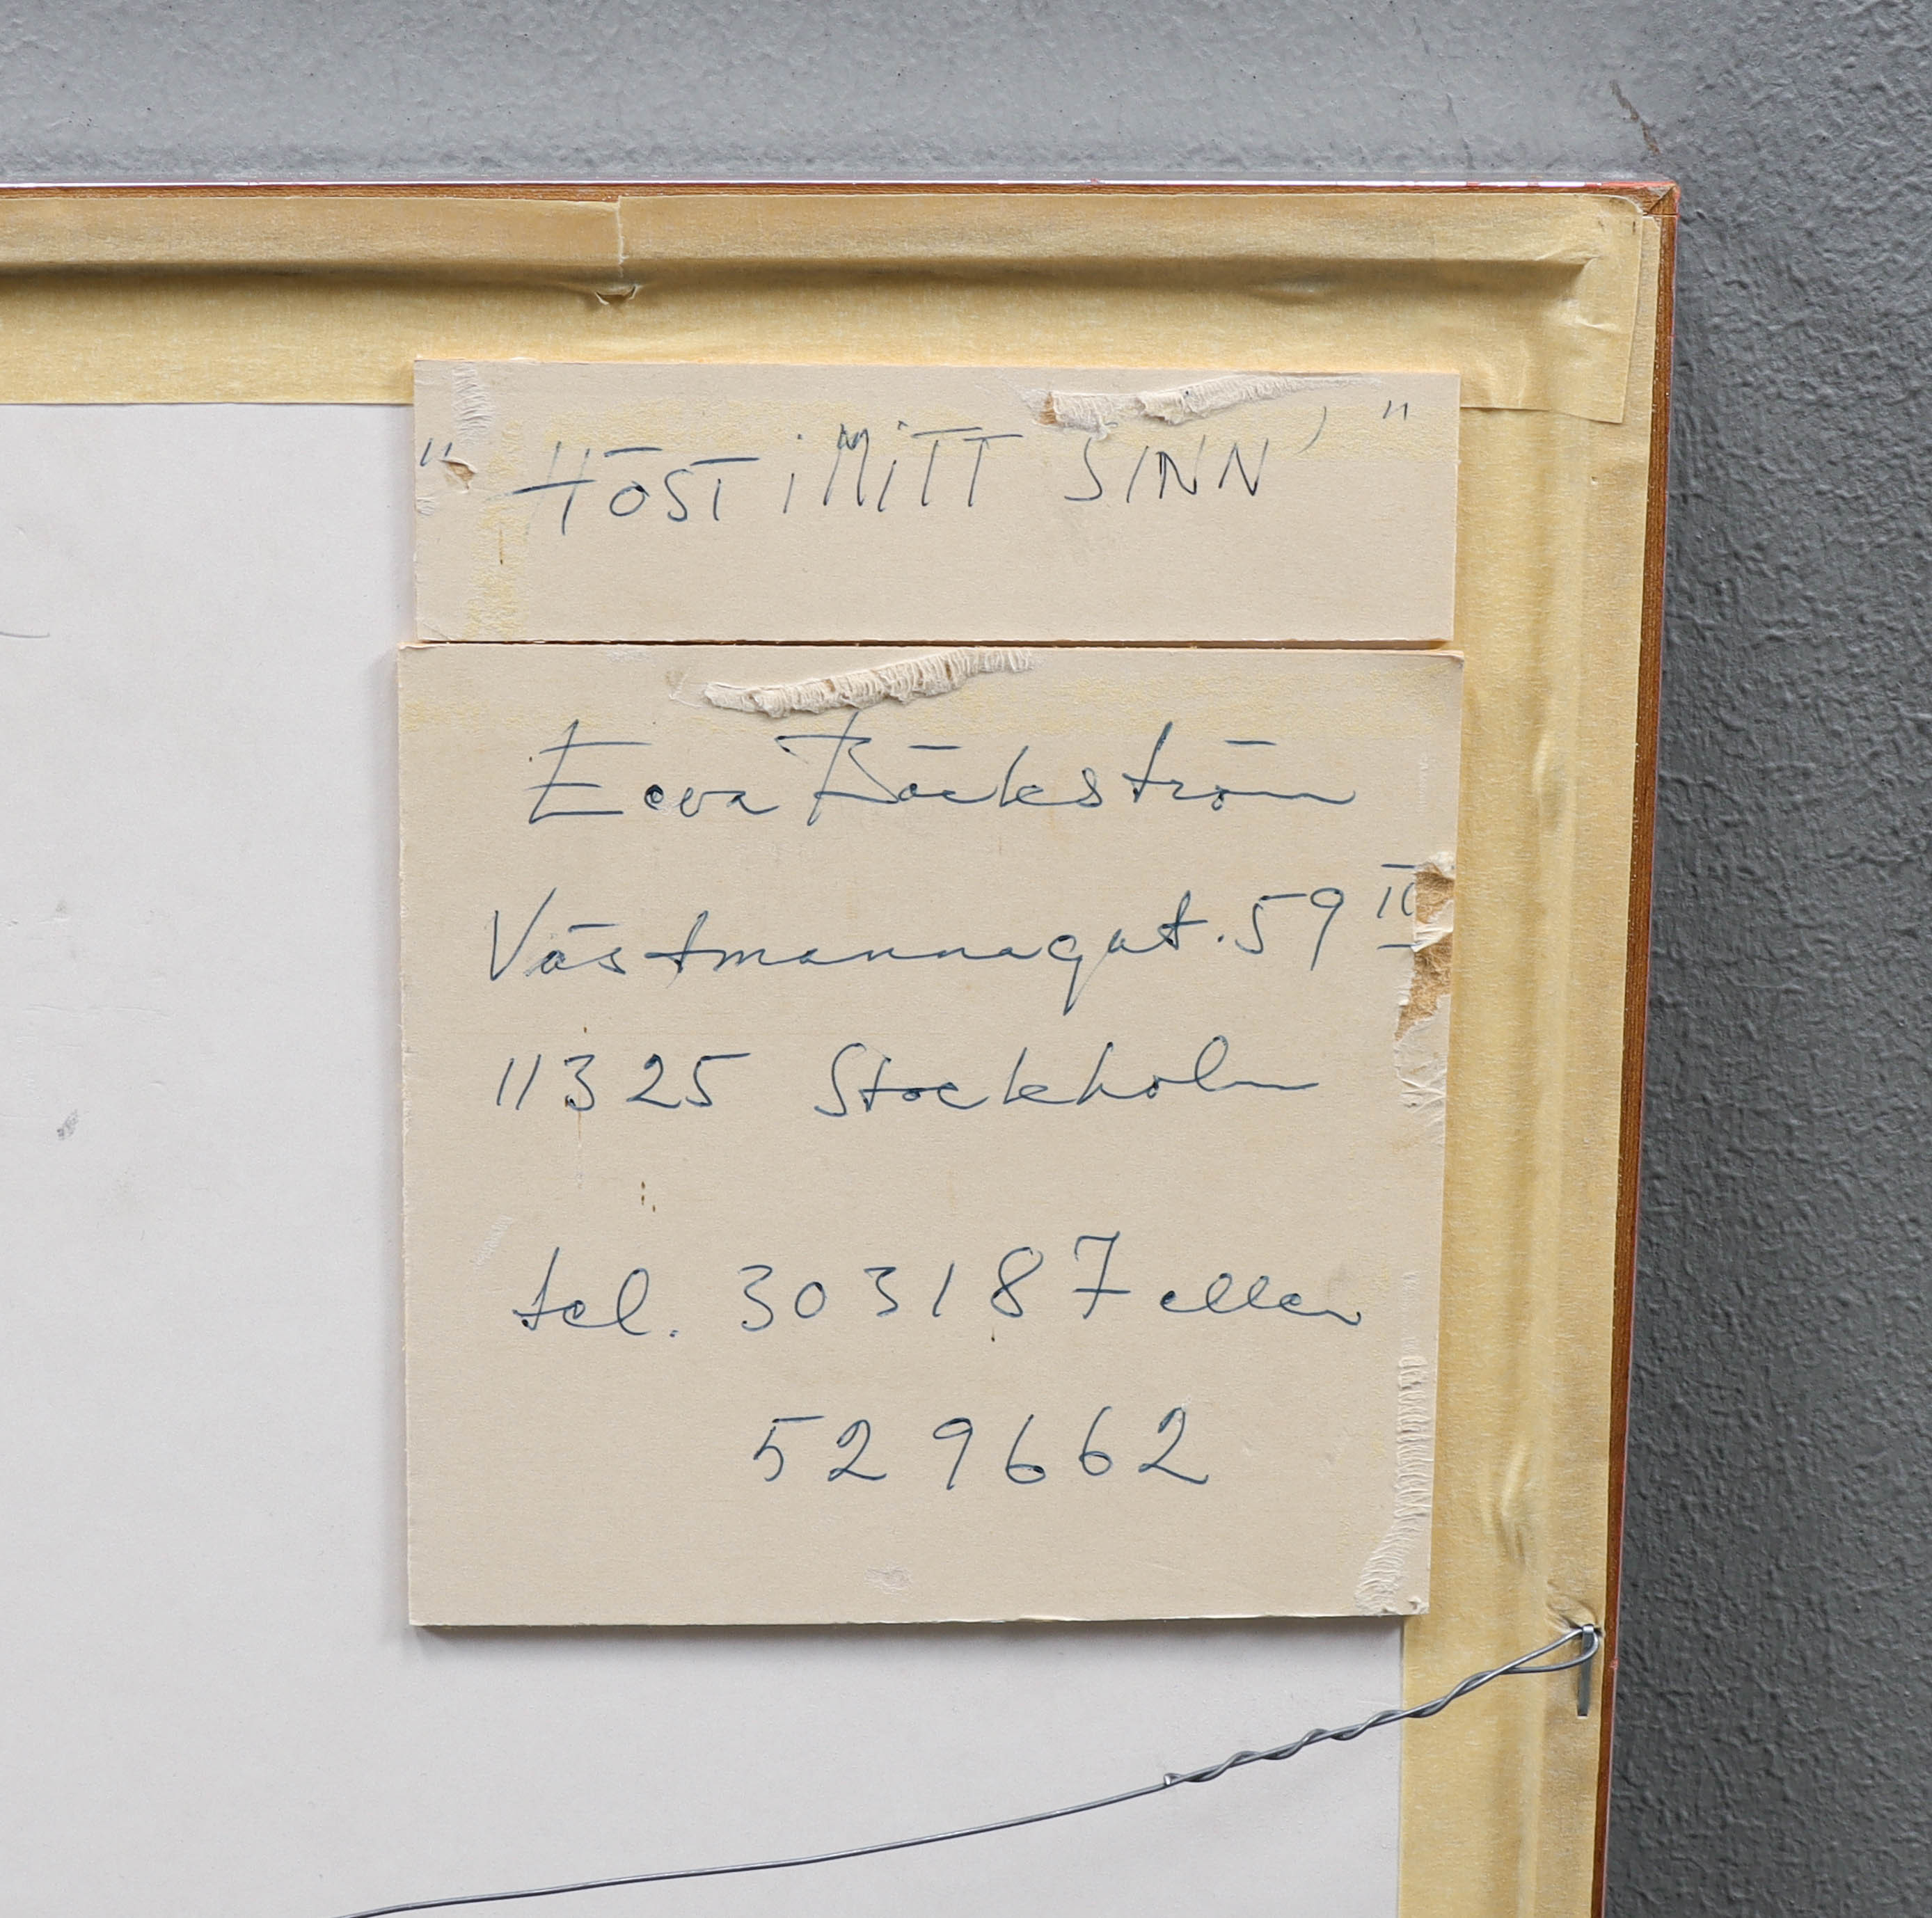 " HÖST i MiTT SINN "
Eeva Bäckström
Västmannagat. 59 II
11325 Stockholm
tel. 303187 eller
529662